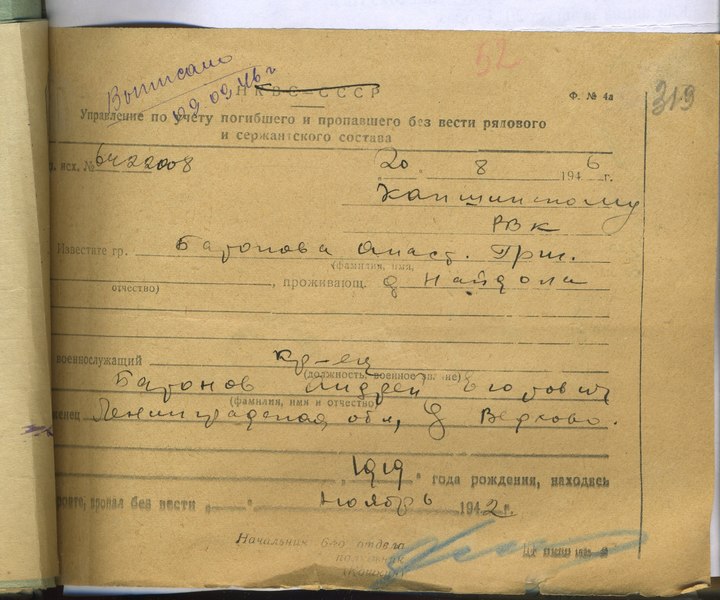 52
Выписано
09.09.46 г
НКВС—СССР
Ф. № 4а
319
Управление по учёту погибшего и пропавшего без вести рядового
и сержантского состава
исх. № 6422008
20 8 1946 г.
Капшинскому
РВК
Известите гр. Батонова Анаст. Григ.
(фамилия, имя,
отчество) , проживающ. д Найдола
военнослужащий кр-ец
(должность, военное звание)
Батонов Андрей
(фамилия, имя и отчество)
женец Ленинградская обл, д Верхово.
, 1919 года рождения, находясь
фронте, пропал без вести „ “ ноябрь 1942 г.
Начальник 6-го отдела
полковник